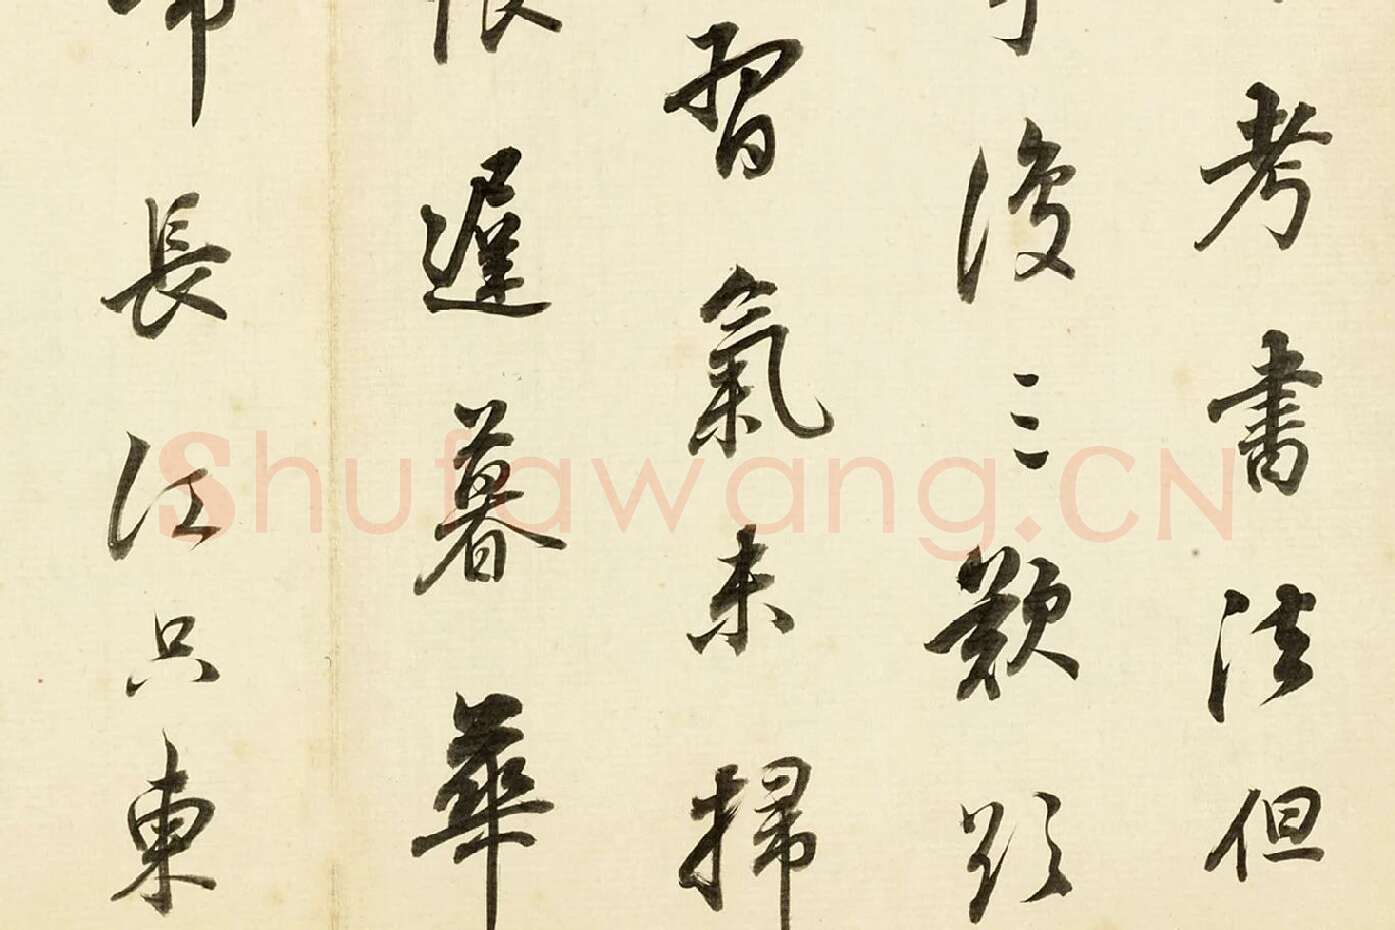 考書法但
後三歎賢
習氣未掃
遲暮華
長江只東
Shufawang.CN